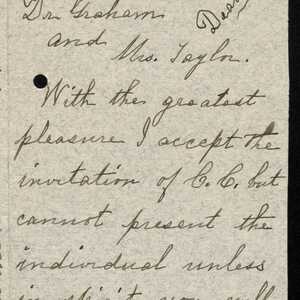 Dear
Dr. Graham
and
Mrs. Taylor.
With the greatest
pleasure I accept the
invitation of C. C. but
cannot present the
individual unless
in spirit you will